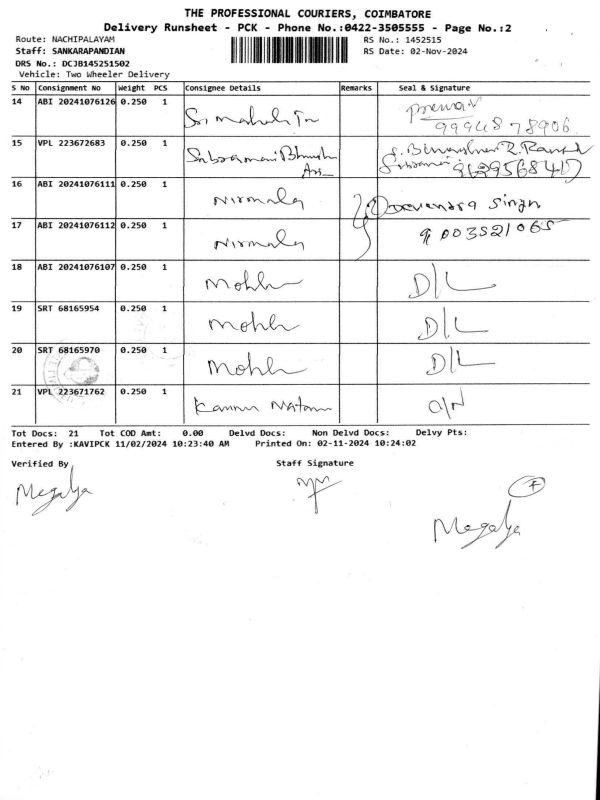 THE PROFESSIONAL COURIERS, COIMBATORE
Delivery Runsheet - PCK - Phone No.:0422-3505555 - Page No.:2
Route: NACHIPALAYAM RS No.: 1452515
Staff: SANKARAPANDIAN RS Date: 02-Nov-2024
DRS No.: DCJB145251502
Vehicle: Two Wheeler Delivery
S No Consignment No Weight PCS Consignee Details Remarks Seal & Signature
14 ABI 20241076126 0.250 1 Sri
9994878906
15 VPL 223672683 0.250 1
16 ABI 20241076111 0.250 1 Nirmala Devendra Singh
17 ABI 20241076112 0.250 1 Nirmala 9003521065
18 ABI 20241076107 0.250 1 D/L
19 SRT 68165954 0.250 1 D/L
20 SRT 68165970 0.250 1 D/L
21 VPL 223671762 0.250 1
Tot Docs: 21 Tot COD Amt: 0.00 Delvd Docs: Non Delvd Docs: Delvy Pts:
Entered By :KAVIPCK 11/02/2024 10:23:40 AM Printed On: 02-11-2024 10:24:02
Verified By Staff Signature
Megala
7
Megala